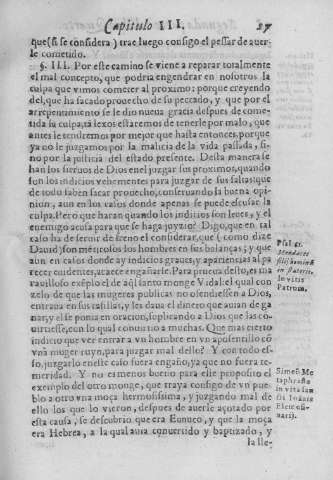 Capitulo III. 27
que (si se considera) trae luego consigo el pessar de auer-
le cometido.
§. III. Por este camino se viene a reparar totalmente
el mal concepto, que podria engendrar en nosotros la
culpa que vimos cometer al proximo: porque creyendo
del, que ha sacado prouecho de su peccado, y que por el
arrepentimiento se le dio nueua gracia despues de come-
tida su culpa, tã lexos estaremos de tenerle por malo, que
antes le tendremos por mejor que hasta entonces, porque
ya no le juzgamos por la malicia de la vida passada, si-
no por la justicia del estado presente. Desta manera se
han los sieruos de Dios en el juzgar sus proximos, quando
son los indicios vehementes para juzgar de sus faltas: que
de todo saben sacar prouecho, conseruando la buena opi-
nion, aun en los casos donde apenas se puede escusar la
culpa. Pero que haran quando los indicios son leues, y el
enemigo acusa para que se haga juyzio? Digo, que en tal
caso ha de seruir de freno el considerar, que (como dize
Dauid) son mẽtirosos los hombres en sus balanças; y que
aun en casos donde ay indicios graues, y apariencias al pa
recer euidentes, acaece engañarse. Para prueua desto, es ma
rauilloso exẽplo el de aq̃l santo monge Vidal: el qual con
zelo de que las mugeres publicas no ofendiessen a Dios,
entraua en sus casillas, y les daua el dinero que auian de ga
nar, y el se ponia en oracion, suplicando a Dios que las co-
uirtiesse, con lo qual conuirtio a muchas. Que mas cierto
indicio que ver entrar a vn hombre en vn aposentillo cõ
vna muger ruyn, para juzgar mal delle? Y con todo es-
so, juzgarlo en este caso fuera engaño, ya que no fuera te-
meridad. Y no es menos bueno para este proposito el
exemplo del otro monge, que traya consigo de vn pue-
blo a otro vna moça hermosissima, y juzgando mal de
ello los que lo vieron, despues de auerle açotado por
esta causa, se descubrio que era Eunuco, y que la moça
era Hebrea, a la qual auia conuertido y baptizado, y
la lle-
Psal. 61.
Mendaces
filij hominũ
in stateris.
In vitis
Patrum.
Simeõ Me
taphraste
in vita san
cti Ioãnis
Elemosi-
narij.